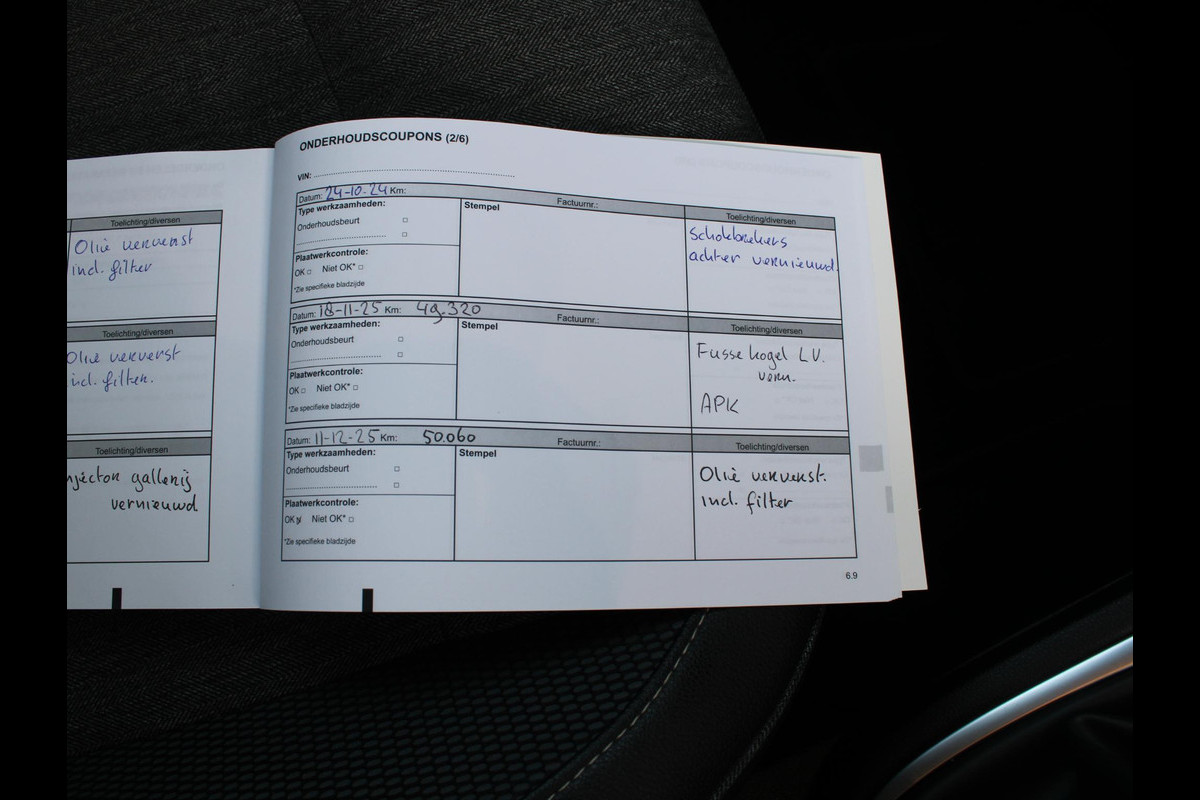 Toelichting/diversen
Olie ververst
incl. filter
Toelichting/diversen
Olie ververst
incl. filter.
Toelichting/diversen
njector gallerij
vernieuwd
ONDERHOUDSCOUPONS (2/6)
VIN:
Datum: 24-10-24 Km: Factuurnr.: Toelichting/diversen
Type werkzaamheden: Stempel
Onderhoudsbeurt
Plaatwerkcontrole:
OK Niet OK*
*Zie specifieke bladzijde
Schokbrekers
achter vernieuwd.
Datum: 18-11-25 Km: 49.320 Factuurnr.: Toelichting/diversen
Type werkzaamheden: Stempel
Onderhoudsbeurt
Plaatwerkcontrole:
OK Niet OK*
*Zie specifieke bladzijde
Fusse kogel L.V.
vern.
APK
Datum: 11-12-25 Km: 50.060 Factuurnr.: Toelichting/diversen
Type werkzaamheden: Stempel
Onderhoudsbeurt
Plaatwerkcontrole:
OK Niet OK*
*Zie specifieke bladzijde
Olie ververst.
incl. filter
6.9